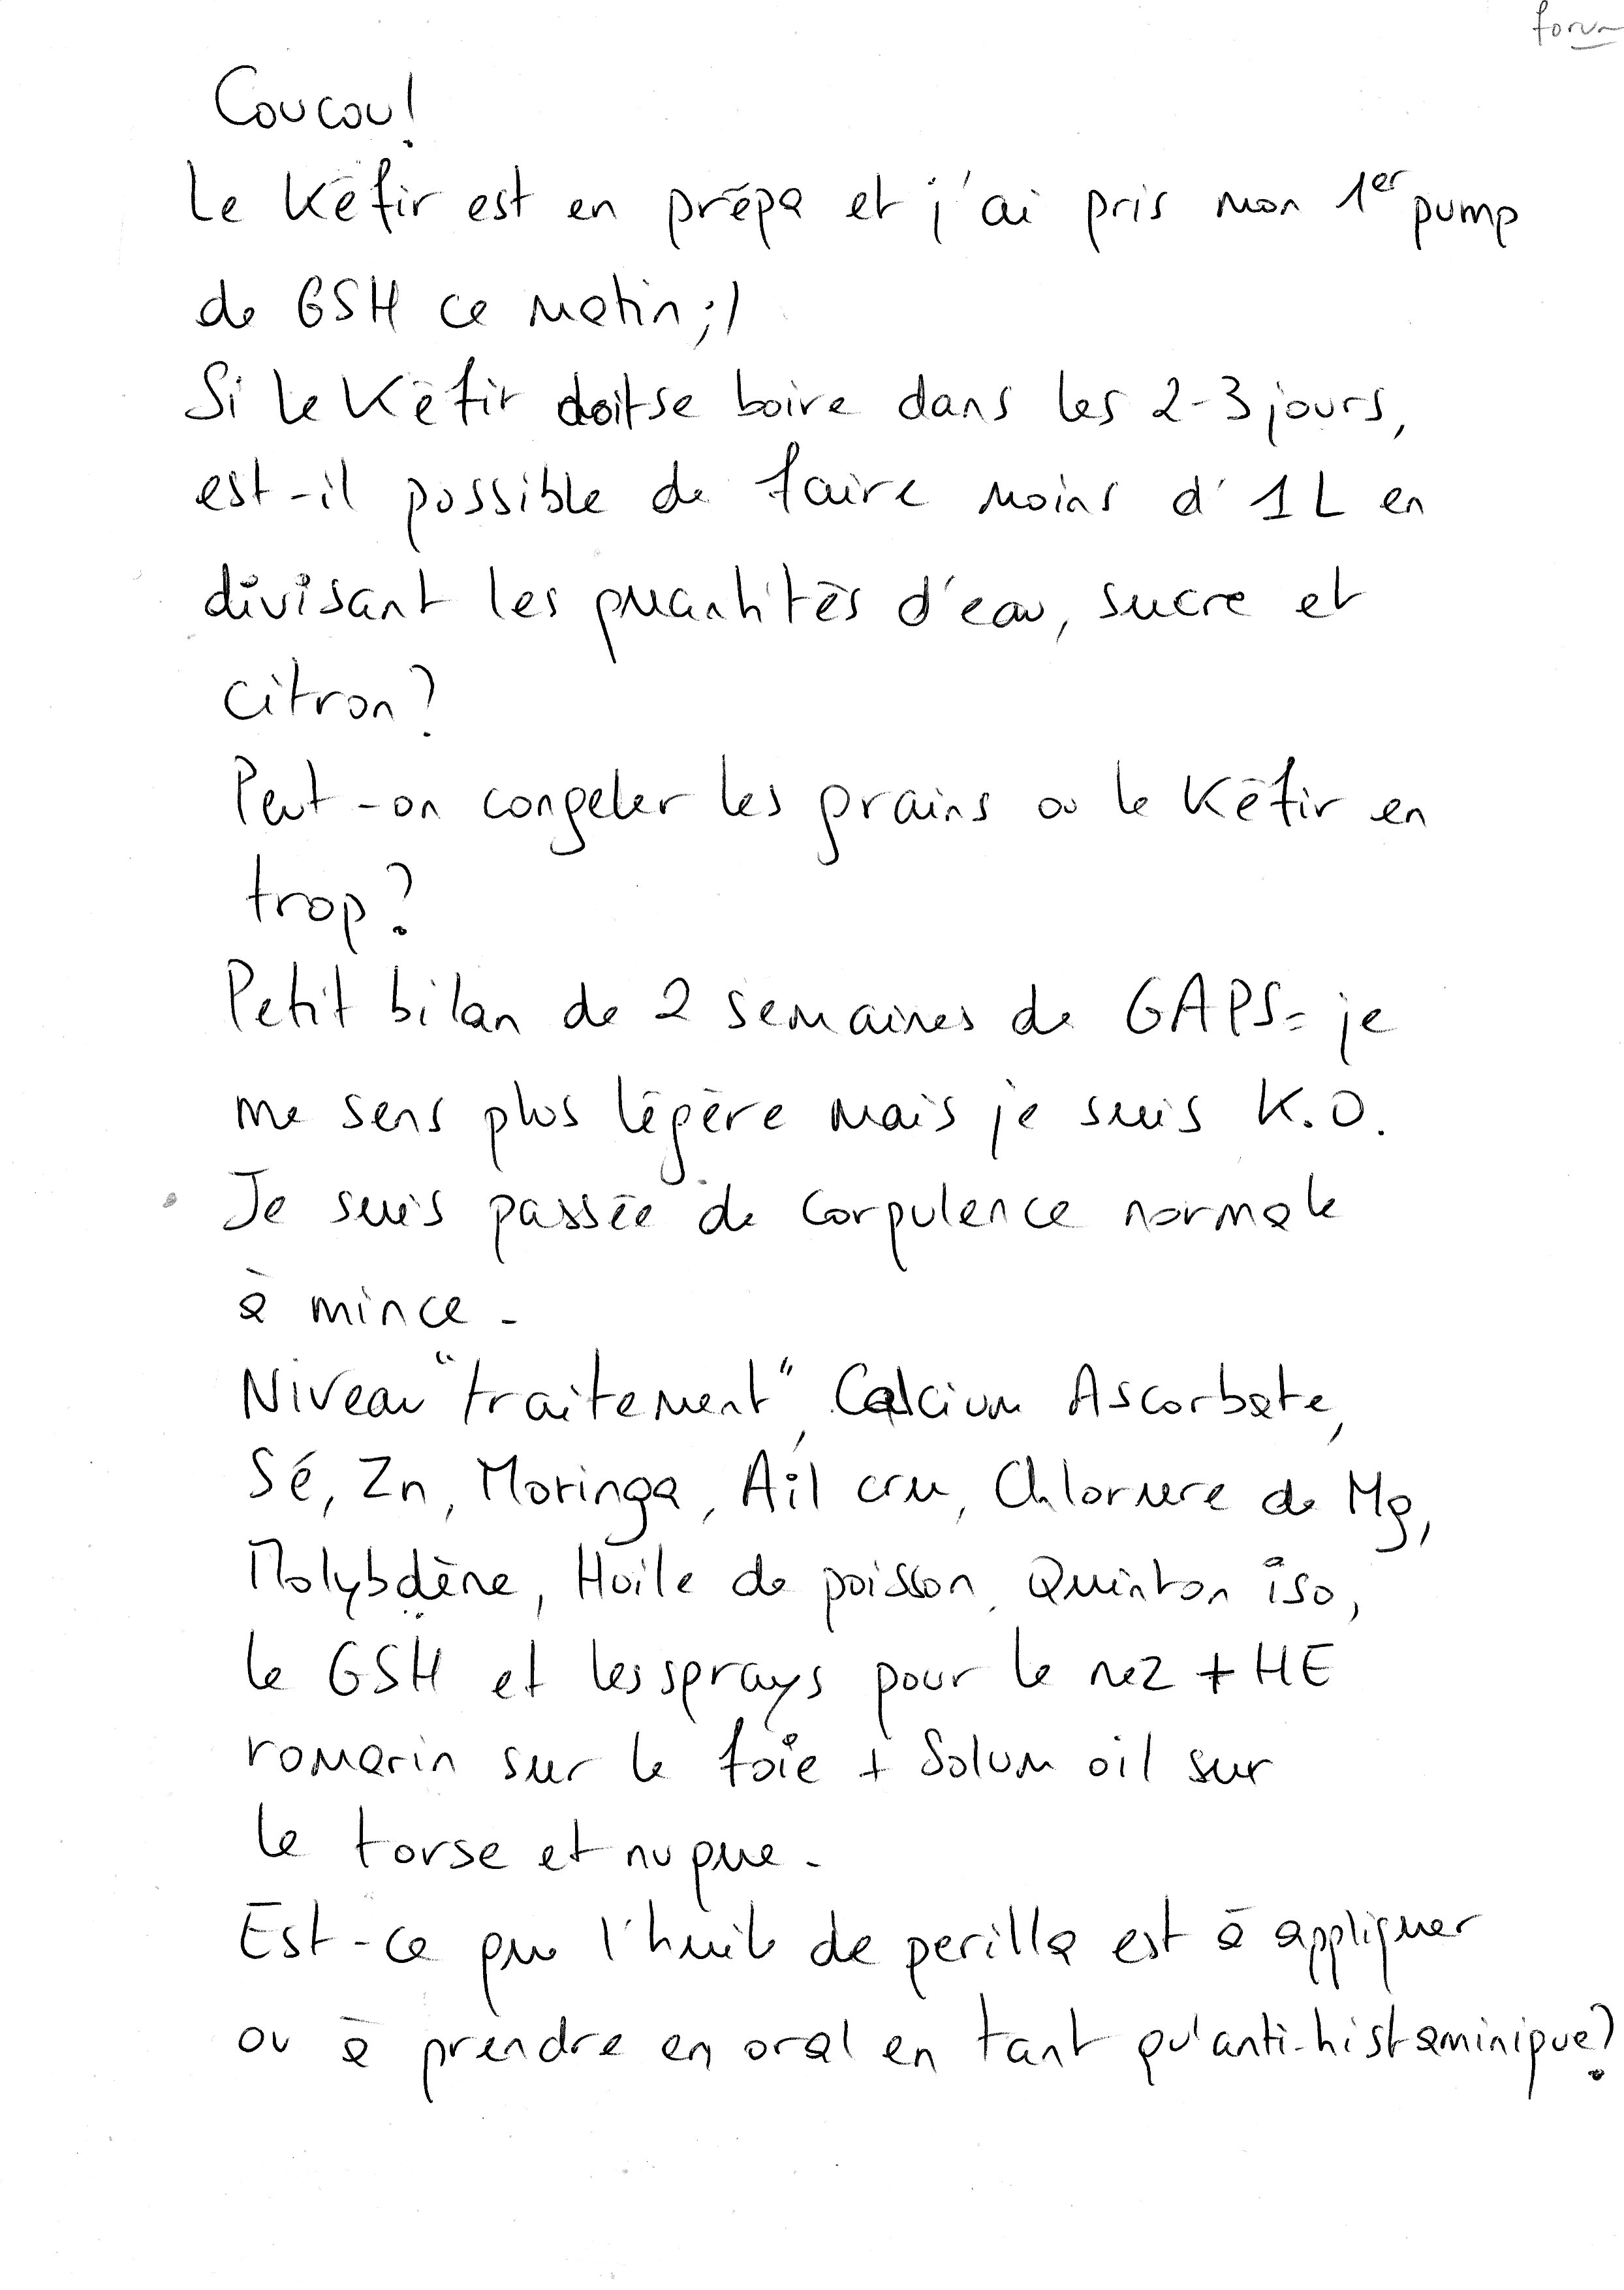 forum
Coucou!
Le Kéfir est en prépa et j'ai pris mon 1er pump
de GSH ce matin ;)
Si le Kéfir doit se boire dans les 2-3 jours,
est-il possible de faire moins d'1L en
divisant les quantités d'eau, sucre et
citron?
Peut-on congeler les grains ou le Kéfir en
trop?
Petit bilan de 2 semaines de GAPS = je
me sens plus légère mais je suis K.O.
Je suis passée de corpulence normale
à mince -
Niveau "traitement", Calcium Ascorbate,
Sé, Zn, Moringa, Ail cru, Chlorure de Mg,
Molybdène, Huile de poisson, Quinton iso,
le GSH et les sprays pour le nez + HE
romarin sur le foie + Solum oil sur
le torse et nuque -
Est-ce que l'huile de perilla est à appliquer
ou à prendre en oral en tant qu'anti-histaminique?